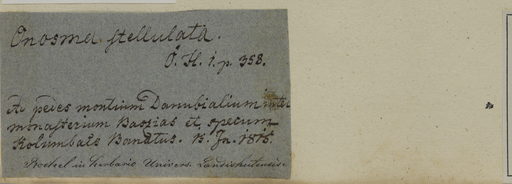 Onosma stellulata.
O. H. 1. p. 358.
Ad pedes montium Danubialium inter
monasterium Bazias et specum
Kolumbats Banatus. R. Ja. 1815.
Rochel in herbario Univers. Landishutensis.